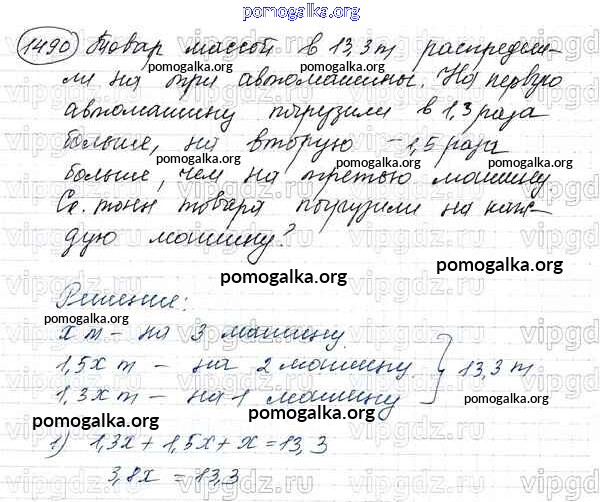 pomogalka.org
1490 Товар массой в 13,3 т распредели-
ли на три автомашины. На первую
pomogalka.org pomogalka.org
автомашину погрузили в 1,3 раза
больше, на вторую – 1,5 раза
pomogalka.org pomogalka.org
больше, чем на третью машину.
Ск. тонн товара погрузили на каж-
pomogalka.org pomogalka.org
дую машину?
pomogalka.org pomogalka.org
Решение:
x т – на 3 машину.
1,5x т – на 2 машину. } 13,3 т
1,3x т – на 1 машину
pomogalka.org pomogalka.org
1) 1,3x + 1,5x + x = 13,3
3,8x = 13,3